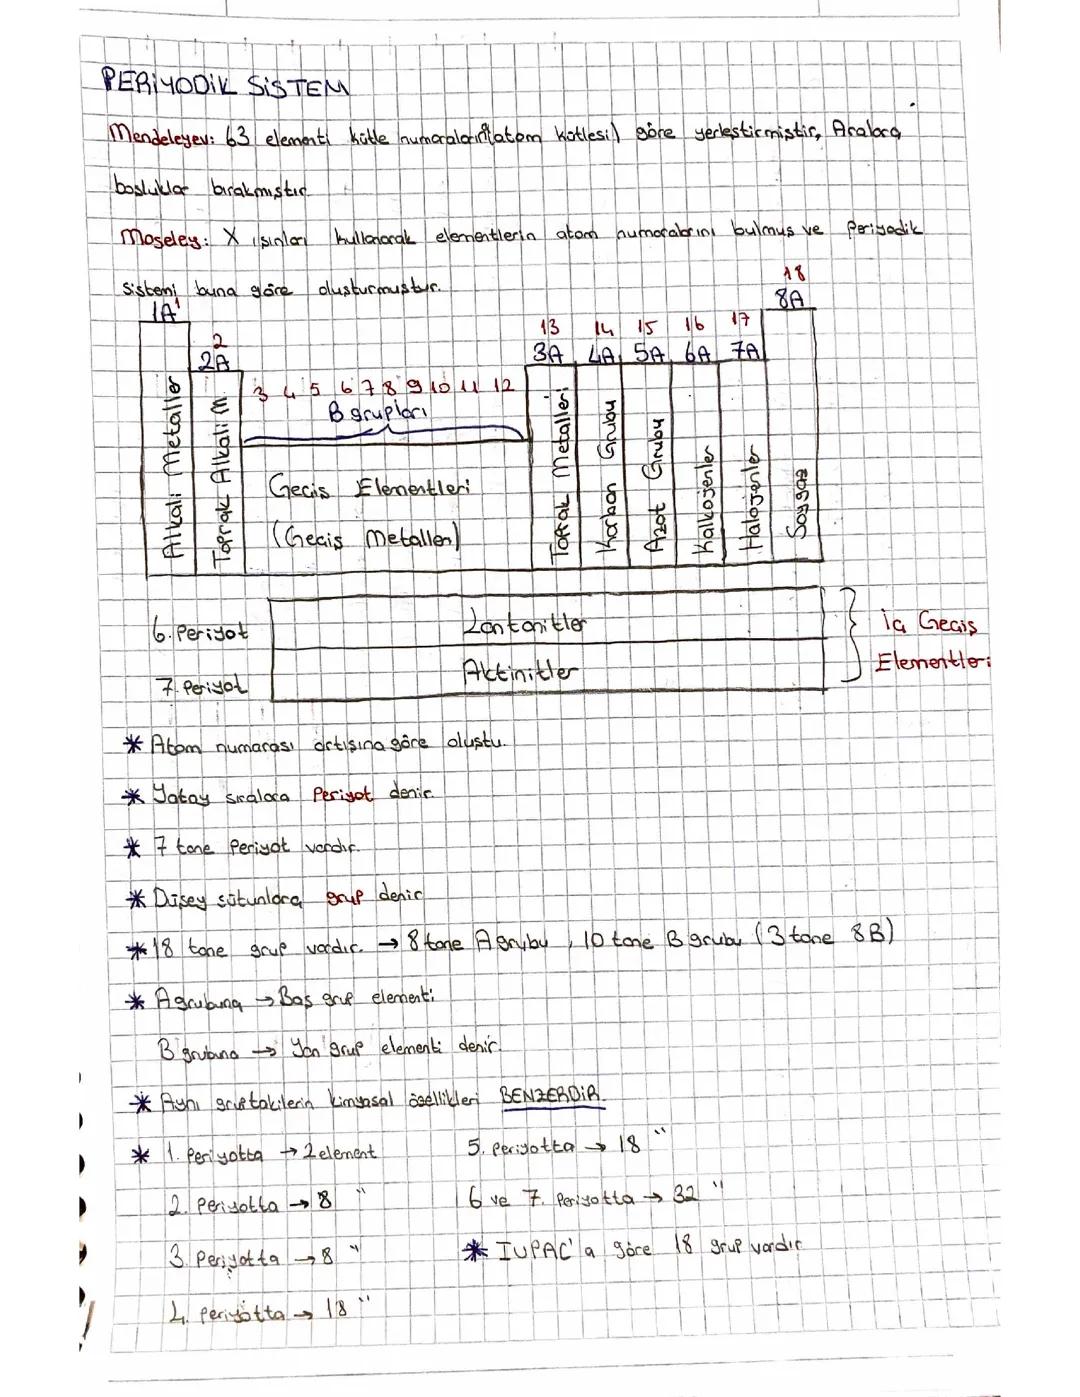 PERİYODİK SİSTEM
Mendeleyev: 63 elementi kütle numaralarına (atom kütlesi) göre yerleştirmiştir, Aralara
boşluklar bırakmıştır
Moseley: X ışınları kullanarak elementlerin atom numaralarını bulmuş ve periyodik
sistemi buna göre oluşturmuştur.
18
1A 1 8A
13 14 15 16 17
2
2A 3A 4A 5A 6A 7A
3 4 5 6 7 8 9 10 11 12
B grupları
Alkali Metaller
Toprak Alkali M.
Geçiş Elementleri
(Geçiş Metalleri)
Toprak Metalleri
Karbon Grubu
Azot Grubu
Kalkojenler
Halojenler
Soygaz
6. Periyot Lantanitler
7. Periyot Aktinitler
İç Geçiş
Elementleri
* Atom numarası artışına göre oluştu.
* Yatay sıralara Periyot denir.
* 7 tane Periyot vardır.
* Düşey sütunlara grup denir
* 18 tane grup vardır. → 8 tane A grubu, 10 tane B grubu (3 tane 8B)
* A grubuna → Baş grup elementi
B grubuna → Yan grup elementi denir.
* Aynı gruptakilerin kimyasal özellikleri BENZERDİR.
* 1. Periyotta → 2 element 5. periyotta → 18 "
2. Periyotta → 8 " 6 ve 7. Periyotta → 32 "
3. Periyotta → 8 " * IUPAC'a göre 18 grup vardır
4. Periyotta → 18 "